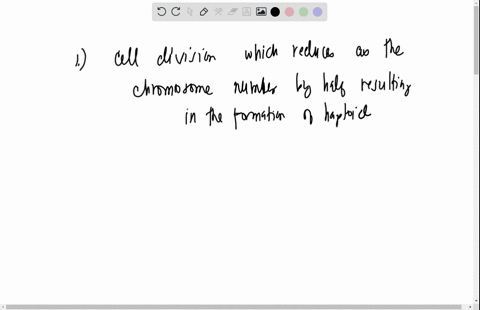 1.) cell division which reduces as the
chromosome number by half resulting
in the formation of haploid